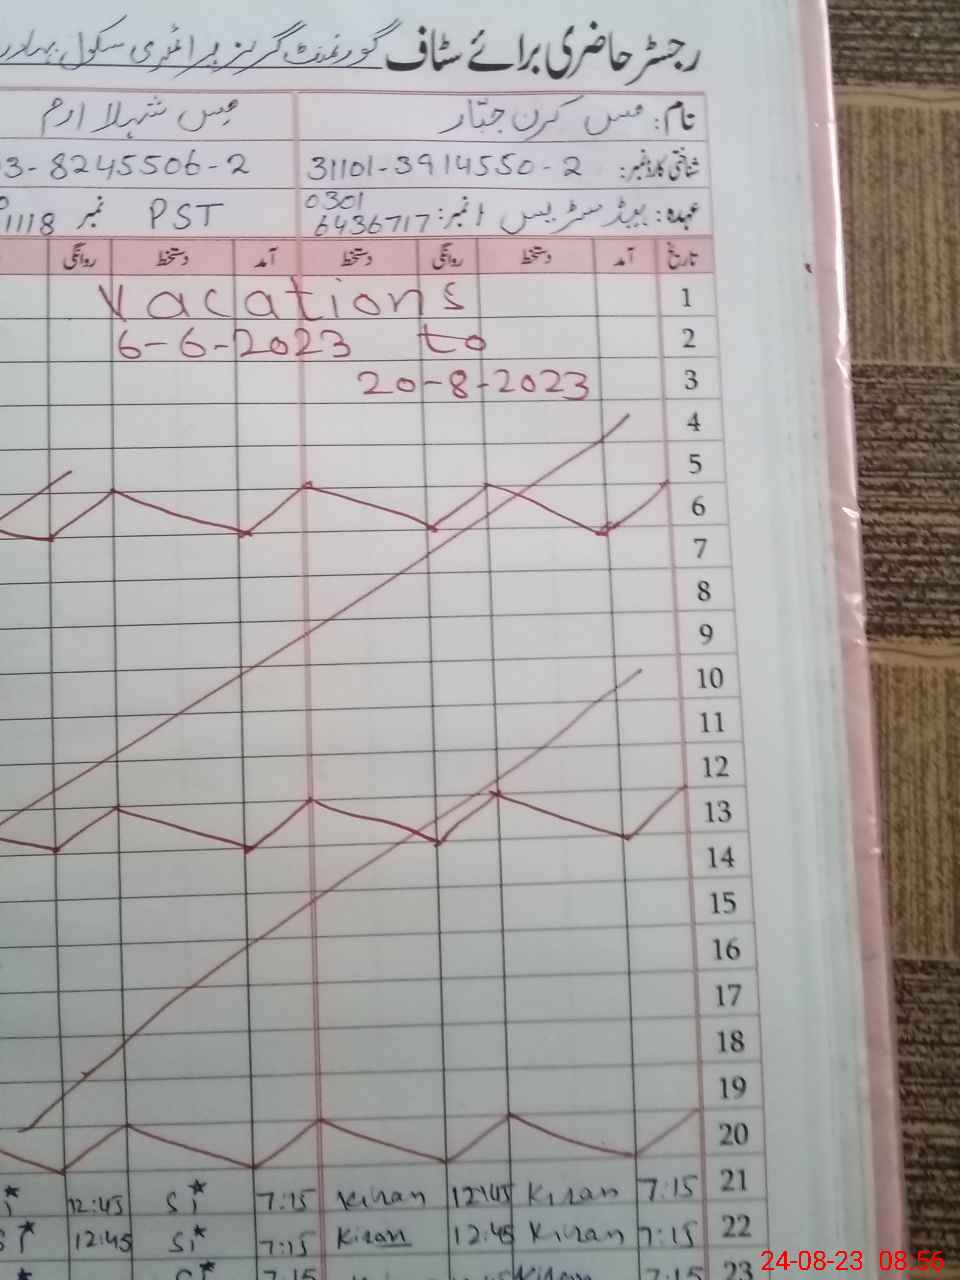 رجسٹر حاضری برائے سٹاف گورنمنٹ گرلز پرائمری سکول
نام: مس کرن جبار مس شہلا ارم
شناختی کارڈ نمبر: 31101-3914550-2 3-8245506-2
عہدہ: ہیڈ مسٹریس نمبر: 0301 6436717 PST نمبر 1118
تاریخ آمد دستخط روانگی دستخط آمد دستخط روانگی
1 Vacations
2 6-6-2023 to
3 20-8-2023
4
5
6
7
8
9
10
11
12
13
14
15
16
17
18
19
20
21 7:15 Kiran 12:45 Kiran 7:15 Si* 12:45
22 7:15 Kiran 12:45 Kiran 7:15 Si* 12:45
23 7:15 Kiran 7:15
24-08-23 08:56